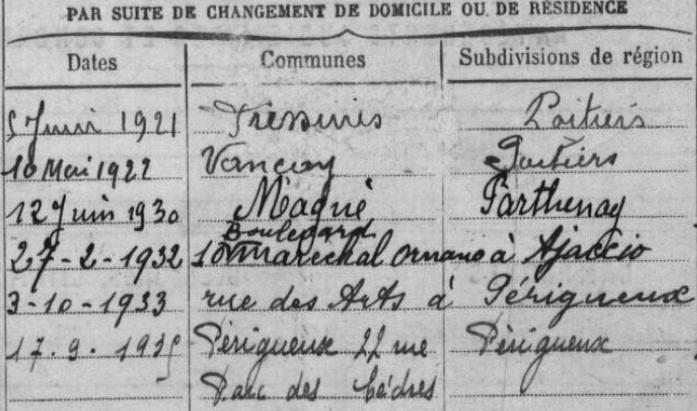 PAR SUITE DE CHANGEMENT DE DOMICILE OU DE RÉSIDENCE
Dates Communes Subdivisions de région
5 Juin 1921 Poitiers
10 Mai 1922 Poitiers
12 Juin 1930 Magné Parthenay
Boulevard
27-2-1932 10 Maréchal Ornano à Ajaccio
3-10-1933 rue des Arts à Périgueux
17.9.1935 Périgueux 22 rue Périgueux
Parc des Cèdres